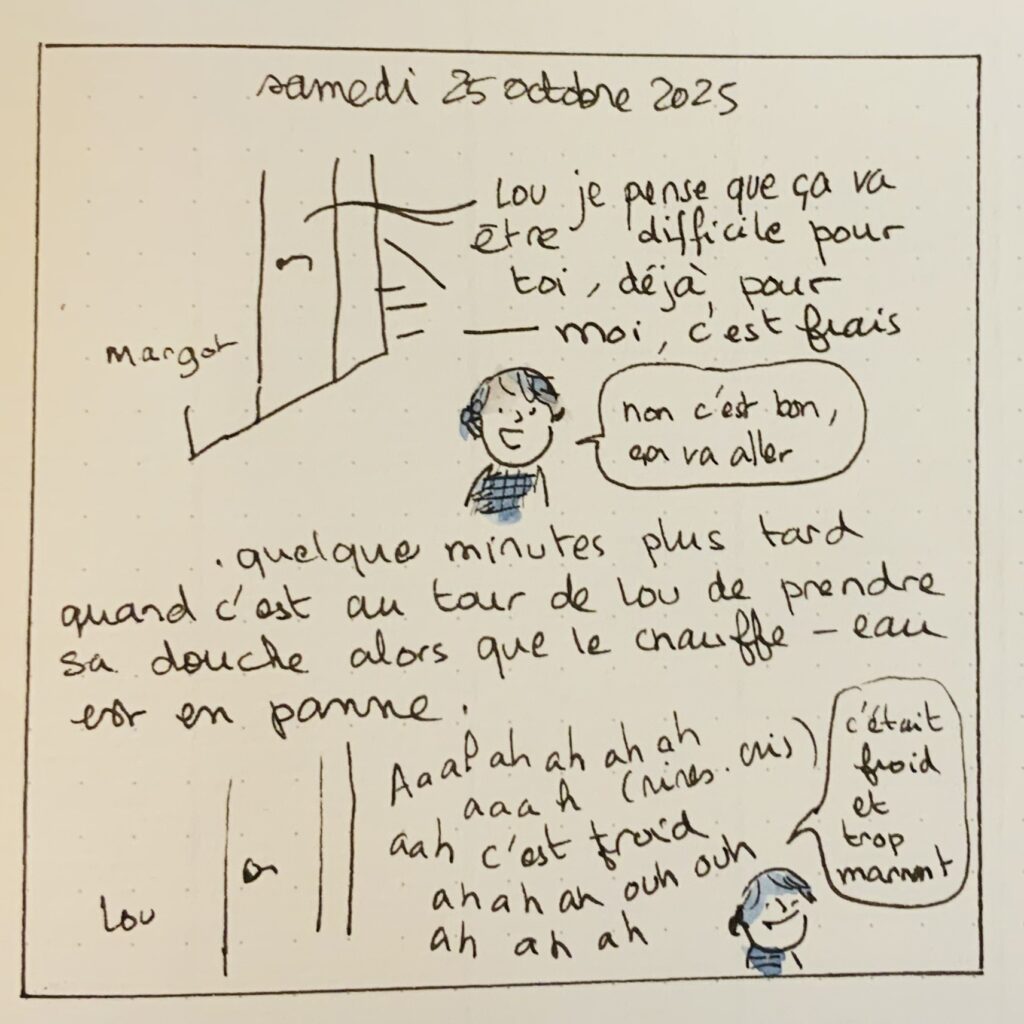 samedi 25 octobre 2025
Lou je pense que ça va
être difficile pour
toi, déjà, pour
moi, c'est frais
margot
non c'est bon,
ça va aller
. quelque minutes plus tard
quand c'est au tour de Lou de prendre
sa douche alors que le chauffe-eau
est en panne.
Aaah ah ah ah ah
aaah (rires. cris)
aah c'est froid
ah ah ah ouh ouh
ah ah ah
Lou
c'était
froid
et
trop
marrant